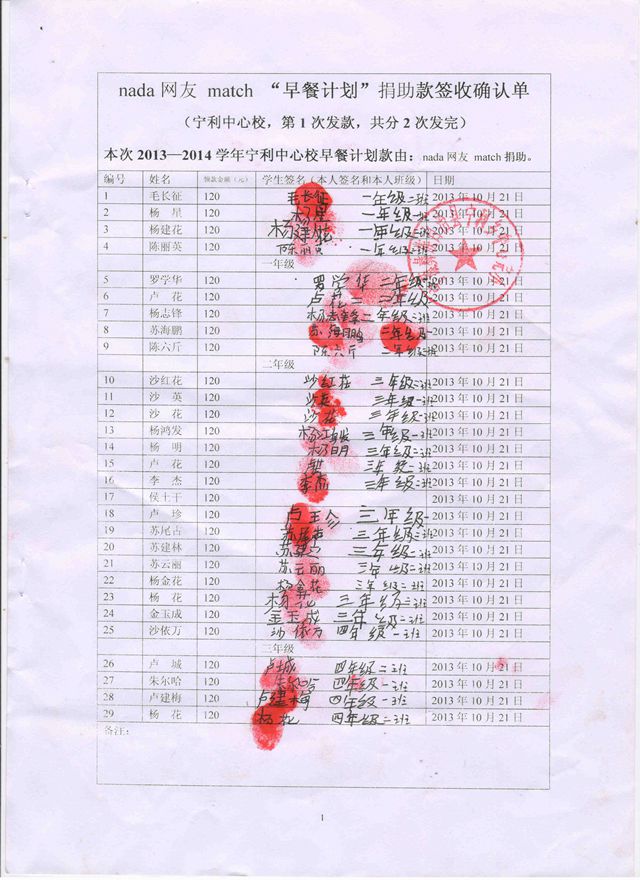 nada 网友 match “早餐计划”捐助款签收确认单
（宁利中心校，第 1 次发款，共分 2 次发完）
本次 2013—2014 学年宁利中心校早餐计划款由：nada 网友 match 捐助。
编号 姓名 领款金额（元） 学生签名（本人签名和本人班级） 日期
1 毛长征 120 毛长征 一年级二班 2013 年 10 月 21 日
2 杨 星 120 杨星 一年级一班 2013 年 10 月 21 日
3 杨建花 120 杨建花 一年级一班 2013 年 10 月 21 日
4 陈丽英 120 陈丽英 一年级二班 2013 年 10 月 21 日
一年级
5 罗学华 120 罗学华 二年级一班 2013 年 10 月 21 日
6 卢 花 120 卢花 二年级 2013 年 10 月 21 日
7 杨志锋 120 杨志锋 二年级一班 2013 年 10 月 21 日
8 苏海鹏 120 苏海鹏 二年级一班 2013 年 10 月 21 日
9 陈六斤 120 陈六斤 二年级二班 2013 年 10 月 21 日
二年级
10 沙红花 120 沙红花 三年级二班 2013 年 10 月 21 日
11 沙 英 120 沙英 三年级一班 2013 年 10 月 21 日
12 沙 花 120 沙花 三年级二班 2013 年 10 月 21 日
13 杨鸿发 120 三年级一班 2013 年 10 月 21 日
14 杨 明 120 杨明 三年级二班 2013 年 10 月 21 日
15 卢 花 120 三年级二班 2013 年 10 月 21 日
16 李 杰 120 三年级二班 2013 年 10 月 21 日
17 侯土干 120 2013 年 10 月 21 日
18 卢 珍 120 三年级一 2013 年 10 月 21 日
19 苏尾古 120 三年级二班 2013 年 10 月 21 日
20 苏建林 120 三年级二班 2013 年 10 月 21 日
21 苏云丽 120 苏云丽 三年级二班 2013 年 10 月 21 日
22 杨金花 120 杨金花 三年级二班 2013 年 10 月 21 日
23 杨 花 120 杨花 三年级二班 2013 年 10 月 21 日
24 金玉成 120 金玉成 三年级二班 2013 年 10 月 21 日
25 沙依万 120 沙依万 四年级一班 2013 年 10 月 21 日
三年级
26 卢 城 120 卢城 四年级二班 2013 年 10 月 21 日
27 朱尔哈 120 四年级一班 2013 年 10 月 21 日
28 卢建梅 120 卢建梅 四年级一班 2013 年 10 月 21 日
29 杨 花 120 杨花 四年级二班 2013 年 10 月 21 日
备注：
1